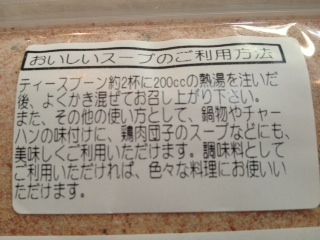 おいしいスープのご利用方法
ティースプーン約2杯に200ccの熱湯を注いだ
後、よくかき混ぜてお召し上がり下さい。
また、その他の使い方として、鍋物やチャー
ハンの味付けに、鶏肉団子のスープなどにも、
美味しくご利用いただけます。調味料として
ご利用いただければ、色々な料理にお使いい
ただけます。